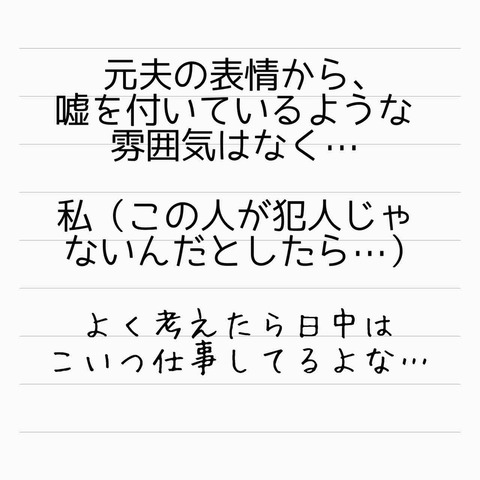 元夫の表情から、
嘘を付いているような
雰囲気はなく…
私（この人が犯人じゃ
ないんだとしたら…）
よく考えたら日中は
こいつ仕事してるよな…